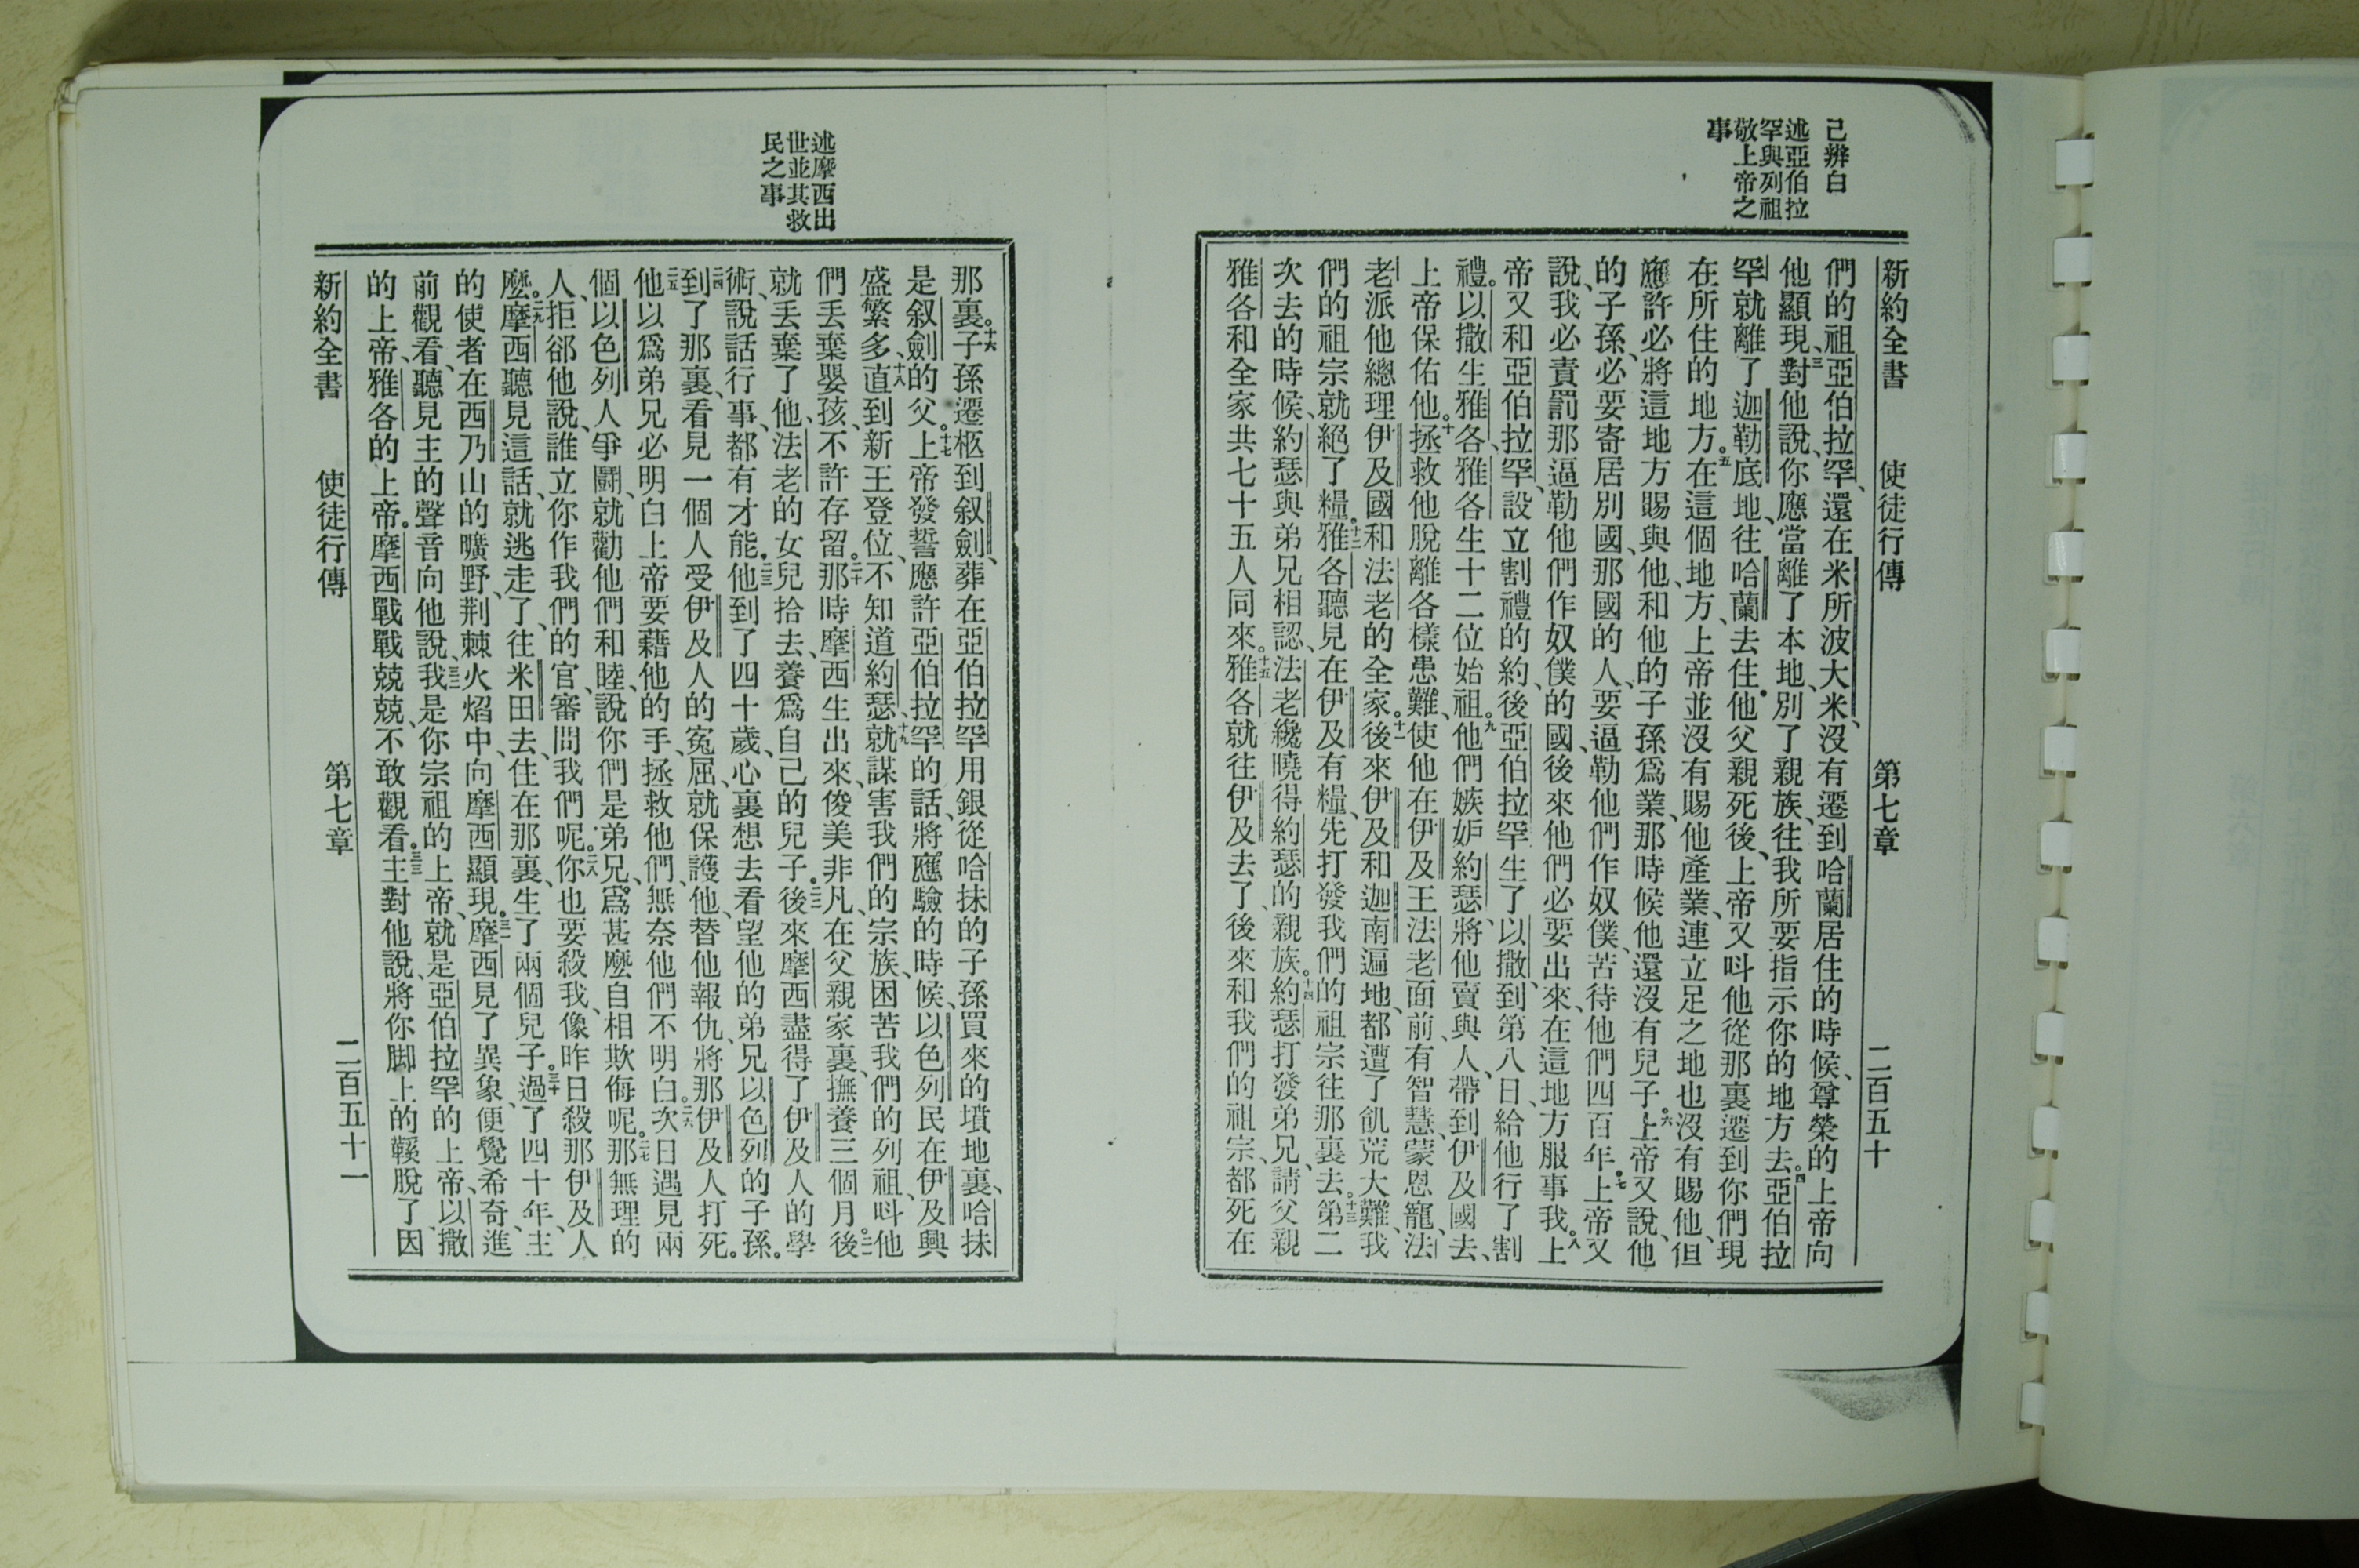 己辨白
述亞伯拉
罕與列祖
敬上帝之
事
新約全書 使徒行傳 第七章 二百五十
們的祖亞伯拉罕、還在米所波大米、沒有遷到哈蘭居住的時候、尊榮的上帝向
他顯現、三對他說、你應當離了本地、別了親族、往我所要指示你的地方去。四亞伯拉
罕就離了迦勒底地、往哈蘭去住。他父親死後、上帝又呌他從那裏遷到你們現
在所住的地方。五在這個地方、上帝並沒有賜他產業、連立足之地也沒有賜他、但
應許必將這地方賜與他、和他的子孫爲業、那時候他還沒有兒子。六上帝又說、他
的子孫、必要寄居別國、那國的人、要逼勒他們作奴僕、苦待他們四百年。七上帝又
說、我必責罰那逼勒他們作奴僕的國、後來他們必要出來、在這地方服事我。八上
帝又和亞伯拉罕、設立割禮的約、後亞伯拉罕生了以撒、到第八日、給他行了割
禮。以撒生雅各、雅各生十二位始祖。九他們嫉妒約瑟、將他賣與人、帶到伊及國去、
上帝保佑他。十拯救他脫離各樣患難、使他在伊及王法老面前、有智慧、蒙恩寵、法
老派他總理伊及國和法老的全家。十一後來伊及和迦南遍地、都遭了飢荒大難、我
們的祖宗就絕了糧。十二雅各聽見在伊及有糧、先打發我們的祖宗往那裏去。十三第二
次去的時候、約瑟與弟兄相認、法老纔曉得約瑟的親族。十四約瑟打發弟兄、請父親
雅各和全家共七十五人同來。十五雅各就往伊及去了、後來和我們的祖宗、都死在
述摩西出
世並其救
民之事
那裏。十六子孫遷柩到叙劍、葬在亞伯拉罕用銀從哈抹的子孫買來的墳地裏、哈抹
是叙劍的父。十七上帝發誓應許亞伯拉罕的話、將應驗的時候、以色列民在伊及興
盛繁多、十八直到新王登位、不知道約瑟、十九就謀害我們的宗族、困苦我們的列祖、呌他
們丟棄嬰孩、不許存留。二十那時摩西生出來、俊美非凡、在父親家裏、撫養三個月後。二一
就丟棄了他、法老的女兒拾去、養爲自己的兒子。二二後來摩西盡得了伊及人的學
術、說話行事、都有才能。二三他到了四十歲、心裏想去看望他的弟兄以色列的子孫。
二四到了那裏、看見一個人受伊及人的寃屈、就保護他、替他報仇、將那伊及人打死。
二五他以爲弟兄必明白上帝要藉他的手、拯救他們、無奈他們不明白。二六次日遇見兩
個以色列人爭鬬、就勸他們和睦、說你們是弟兄、爲甚麽自相欺侮呢。二七那無理的
人、拒郤他說、誰立你作我們的官、審問我們呢。二八你也要殺我、像昨日殺那伊及人
麽。二九摩西聽見這話、就逃走了、往米田去、住在那裏、生了兩個兒子。三十過了四十年、主
的使者在西乃山的曠野、荆棘火熖中、向摩西顯現。三一摩西見了異象、便覺希奇、進
前觀看、聽見主的聲音向他說、三二我是你宗祖的上帝、就是亞伯拉罕的上帝、以撒
的上帝、雅各的上帝。摩西戰戰兢兢、不敢觀看。三三主對他說、將你脚上的鞵脫了、因
新約全書 使徒行傳 第七章 二百五十一